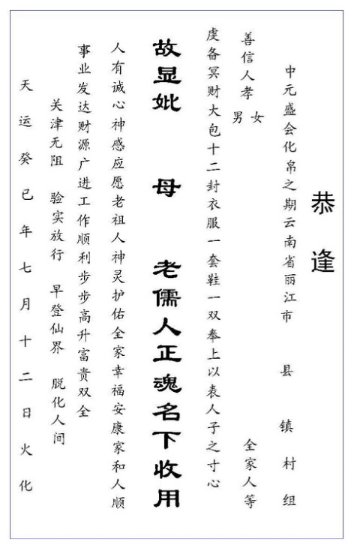 恭逢
中元盛会化帛之期云南省丽江市 县 镇 村 组
善信人孝 男 女 全家人等
虔备冥财大包十二封衣服一套鞋一双奉上以表人子之寸心
故显妣 母 老儒人正魂名下收用
人有诚心神感应愿老祖人神灵护佑全家幸福安康家和人顺
事业发达财源广进工作顺利步步高升富贵双全
关津无阻 验实放行 早登仙界 脱化人间
天运癸巳年七月十二日火化